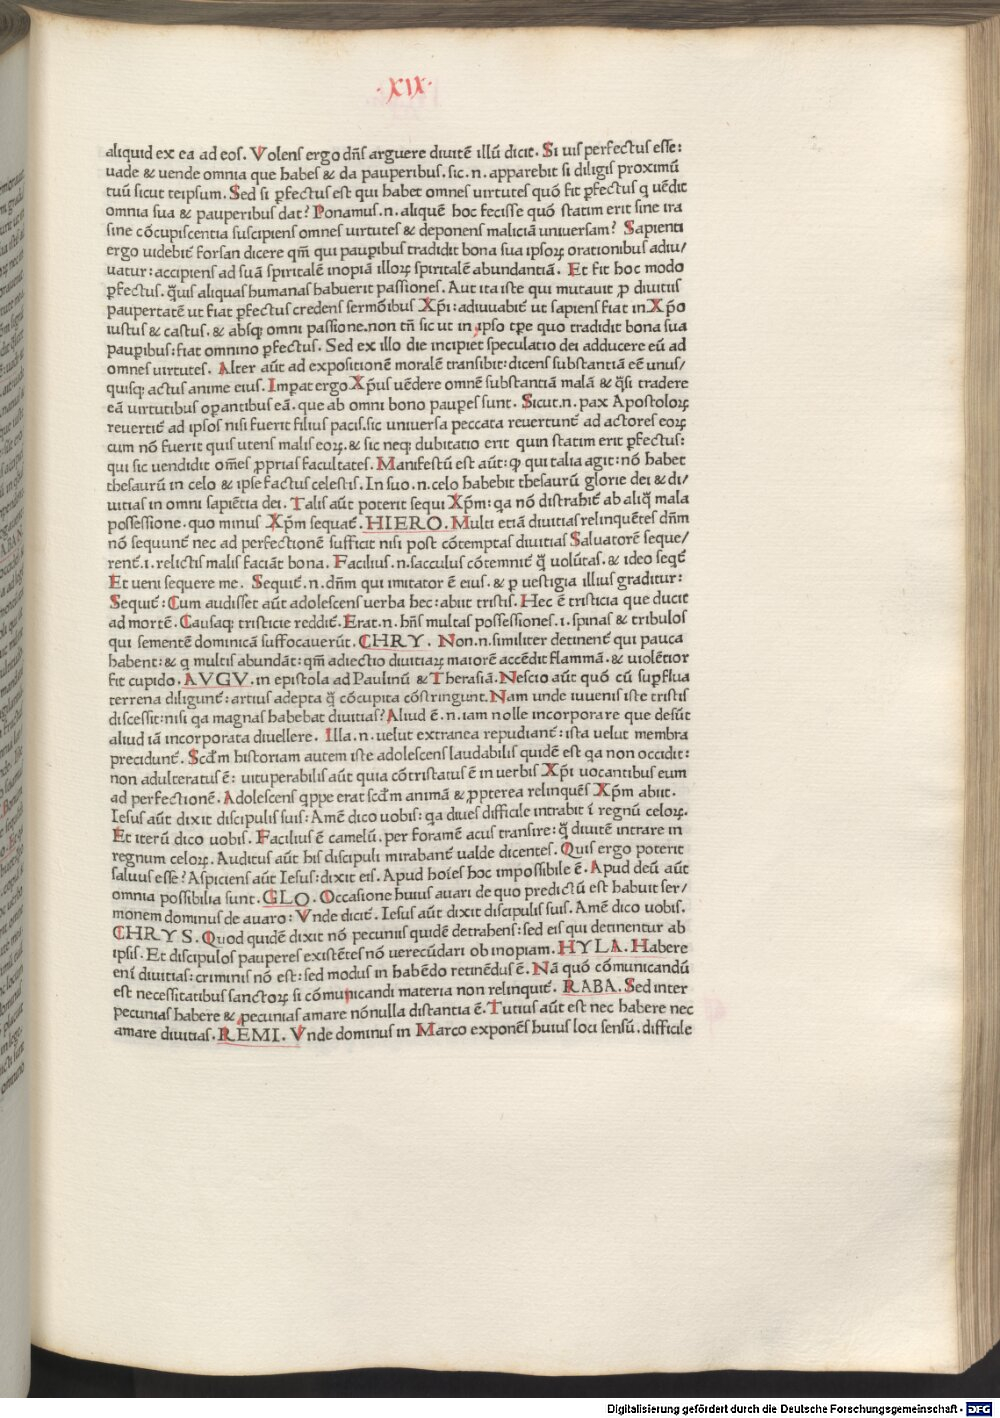 ·XIX·
aliquid ex ea ad eos. Volens ergo dn̄s arguere diuitē illū dicit. Si uis perfectus esse:
uade & uende omnia que habes & da pauperibus. sic .n. apparebit si diligis proximū
tuū sicut teipsum. Sed si ꝑfectus est qui habet omnes uirtutes quō fit ꝑfectus q uēdit
omnia sua & pauperibus dat? Ponamus .n. aliquē hoc fecisse quō statim erit sine ira
sine cōcupiscentia suscipiens omnes uirtutes & deponens maliciā uniuersam? Sapienti
ergo uidebit̄ forsan dicere qm̄ qui pauꝑibus tradidit bona sua ipsoꝝ orationibus adiu/
uatur: accipiens ad suā spiritalē inopiā illoꝝ spiritalē abundantiā. Et fit hoc modo
ꝑfectus. q̄uis aliquas humanas habuerit passiones. Aut ita iste qui mutauit ꝓ diuitiis
paupertatē ut fiat ꝑfectus credens sermōibus Xp̄i: adiuuabit̄ ut sapiens fiat in Xp̄o
iustus & castus. & absqꝫ omni passione. non tn̄ sic ut in ipso tp̄e quo tradidit bona sua
pauꝑibus: fiat omnino ꝑfectus. Sed ex illo die incipiet speculatio dei adducere eū ad
omnes uirtutes. Alter aūt ad expositionē moralē transibit: dicens substantiā eē unus/
quisqꝫ actus anime eius. Imꝑat ergo Xp̄us uēdere omnē substantiā malā & q̄si tradere
eā uirtutibus oꝑantibus eā. que ab omni bono pauꝑes sunt. Sicut .n. pax Apostoloꝝ
reuertit̄ ad ipsos nisi fuerit filius pacis. sic uniuersa peccata reuertunt̄ ad actores eoꝝ
cum nō fuerit quis utens malis eoꝝ. & sic neqꝫ dubitatio erit quin statim erit ꝑfectus:
qui sic uendidit om̄es ꝓprias facultates. Manifestū est aūt: ꝙ qui talia agit: nō habet
thesaurū in celo & ipse factus celestis. In suo .n. celo habebit thesaurū glorie dei & di/
uitias in omni sapiētia dei. Talis aūt poterit sequi Xp̄m: qa nō distrahit̄ ab aliq̄ mala
possessione. quo minus Xp̄m sequat̄. HIERO. Multi etiā diuitias relinquētes dn̄m
nō sequunt̄ nec ad perfectionē sufficit nisi post cōtemptas diuitias Saluatorē seque/
rent̄ .i. relictis malis faciāt bona. Facilius .n. sacculus cōtemnit̄ q̄ uolūtas. & ideo seqt̄
Et ueni sequere me. Sequit̄ .n. dn̄m qui imitator ē eius. & ꝑ uestigia illius graditur:
Sequit̄: Cum audisset aūt adolescens uerba hec: abiit tristis. Hec ē tristicia que ducit
ad mortē. Causaqꝫ tristicie reddit̄. Erat .n. hn̄s multas possessiones .i. spinas & tribulos
qui sementē dominicā suffocauerūt. CHRY. Non .n. similiter detinent̄ qui pauca
habent: & q multis abundāt: qm̄ adiectio diuitiaꝝ maiorē accēdit flammā. & uiolētior
fit cupido. AVGV. in epistola ad Paulinū & Therasiā. Nescio aūt quō cū suꝑflua
terrena diligunt̄: artius adepta q̄ cōcupita cōstringunt. Nam unde iuuenis iste tristis
discessit: nisi qa magnas habebat diuitias? Aliud ē .n. iam nolle incorporare que desūt
aliud iā incorporata diuellere. Illa .n. uelut extranea repudiant̄: ista uelut membra
precidunt̄. Scd̄m historiam autem iste adolescens laudabilis quidē est qa non occidit:
non adulteratus ē: uituperabilis aūt quia cōtristatus ē in uerbis Xp̄i uocantibus eum
ad perfectionē. Adolescens qppe erat scd̄m animā & ꝓpterea relinquēs Xp̄m abiit.
Iesus aūt dixit discipulis suis: Amē dico uobis: qa diues difficile intrabit ī regnū celoꝝ.
Et iterū dico uobis. Facilius ē camelū. per foramē acus transire: q̄ diuitē intrare in
regnum celoꝝ. Auditus aūt his discipuli mirabant̄ ualde dicentes. Quis ergo poterit
saluus esse? Aspiciens aūt Iesus: dixit eis. Apud hoīes hoc impossibile ē. Apud deū aūt
omnia possibilia sunt. GLO. Occasione huius auari de quo predictū est habuit ser/
monem dominus de auaro: Vnde dicit̄. Iesus aūt dixit discipulis suis. Amē dico uobis.
CHRYS. Quod quidē dixit nō pecuniis quidē detrahens: sed eis qui detinentur ab
ipsis. Et discipulos pauperes existētes nō uerecūdari ob inopiam. HYLA. Habere
enī diuitias: criminis nō est: sed modus in habēdo retinēdus ē. Nā quō cōmunicandū
est necessitatibus sanctoꝝ si cōmunicandi materia non relinquit̄. RABA. Sed inter
pecunias habere & pecunias amare nōnulla distantia ē. Tutius aūt est nec habere nec
amare diuitias. REMI. Vnde dominus in Marco exponēs huius loci sensū. difficile
Digitalisierung gefördert durch die Deutsche Forschungsgemeinschaft - DFG